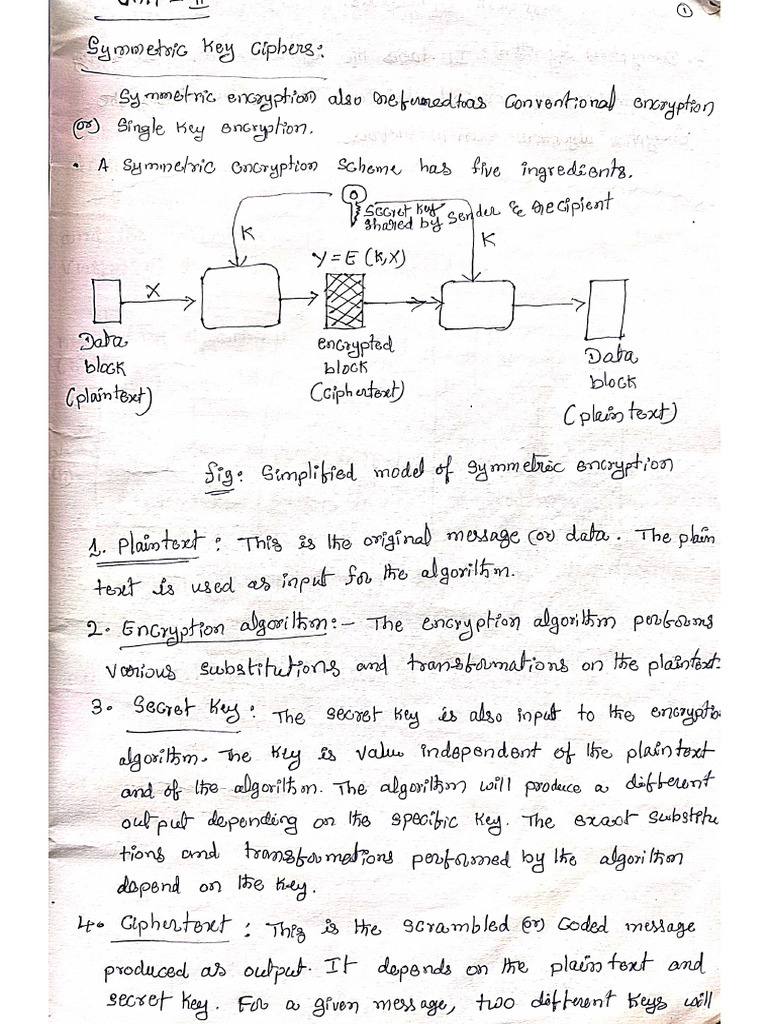 Unit - II
1
Symmetric Key Ciphers:
Symmetric encryption also referred to as conventional encryption
(or) Single key encryption.
• A symmetric encryption scheme has five ingredients.
Secret key
shared by sender & recipient
K
K
Y = E (K, X)
X
Data
block
(plaintext)
encrypted
block
(ciphertext)
Data
block
(plaintext)
fig: Simplified model of symmetric encryption
1. Plaintext : This is the original message (or data. The plain
text is used as input for the algorithm.
2. Encryption algorithm:- The encryption algorithm performs
various substitutions and transformations on the plaintext.
3. Secret Key : The secret key is also input to the encryptio
algorithm. The key is value independent of the plaintext
and of the algorithm. The algorithm will produce a different
output depending on the specific key. The exact substitu
tions and transformations performed by the algorithm
depend on the key.
4. Ciphertext : This is the scrambled (or) coded message
produced as output. It depends on the plaintext and
secret key. For a given message, two different keys will